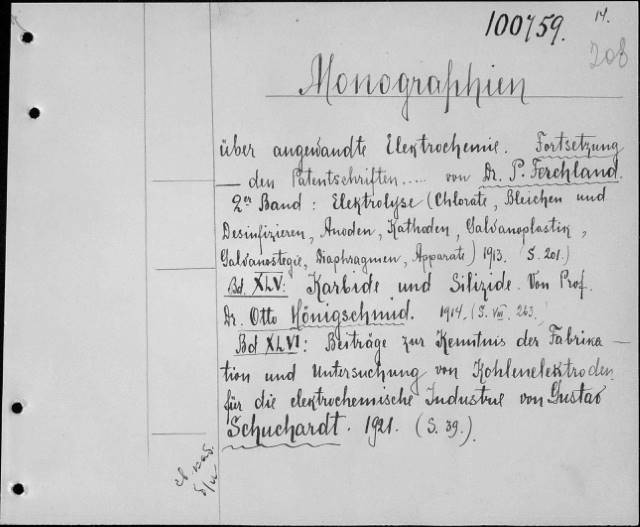 100759.
14.
208
Monographien
über angewandte Elektrochemie. Fortsetzung
— den Patentschriften..... von Dr. P. Ferchland.
2er Band: Elektrolyse (Chlorate, Bleichen und
Desinfizieren, Anoden, Kathoden, Galvanoplastik,
Galvanostegie, Diaphragmen, Apparate) 1913. (S. 201.)
Bd. XLV: Karbide und Silizide. Von Prof.
Dr. Otto Hönigschmid. 1914. (S. VIII. 263.)
Bd XLVI: Beiträge zur Kenntnis der Fabrika—
tion und Untersuchung von Kohlenelektroden
für die elektrochemische Industrie von Gustav
Schuchardt. 1921. (S. 39.).